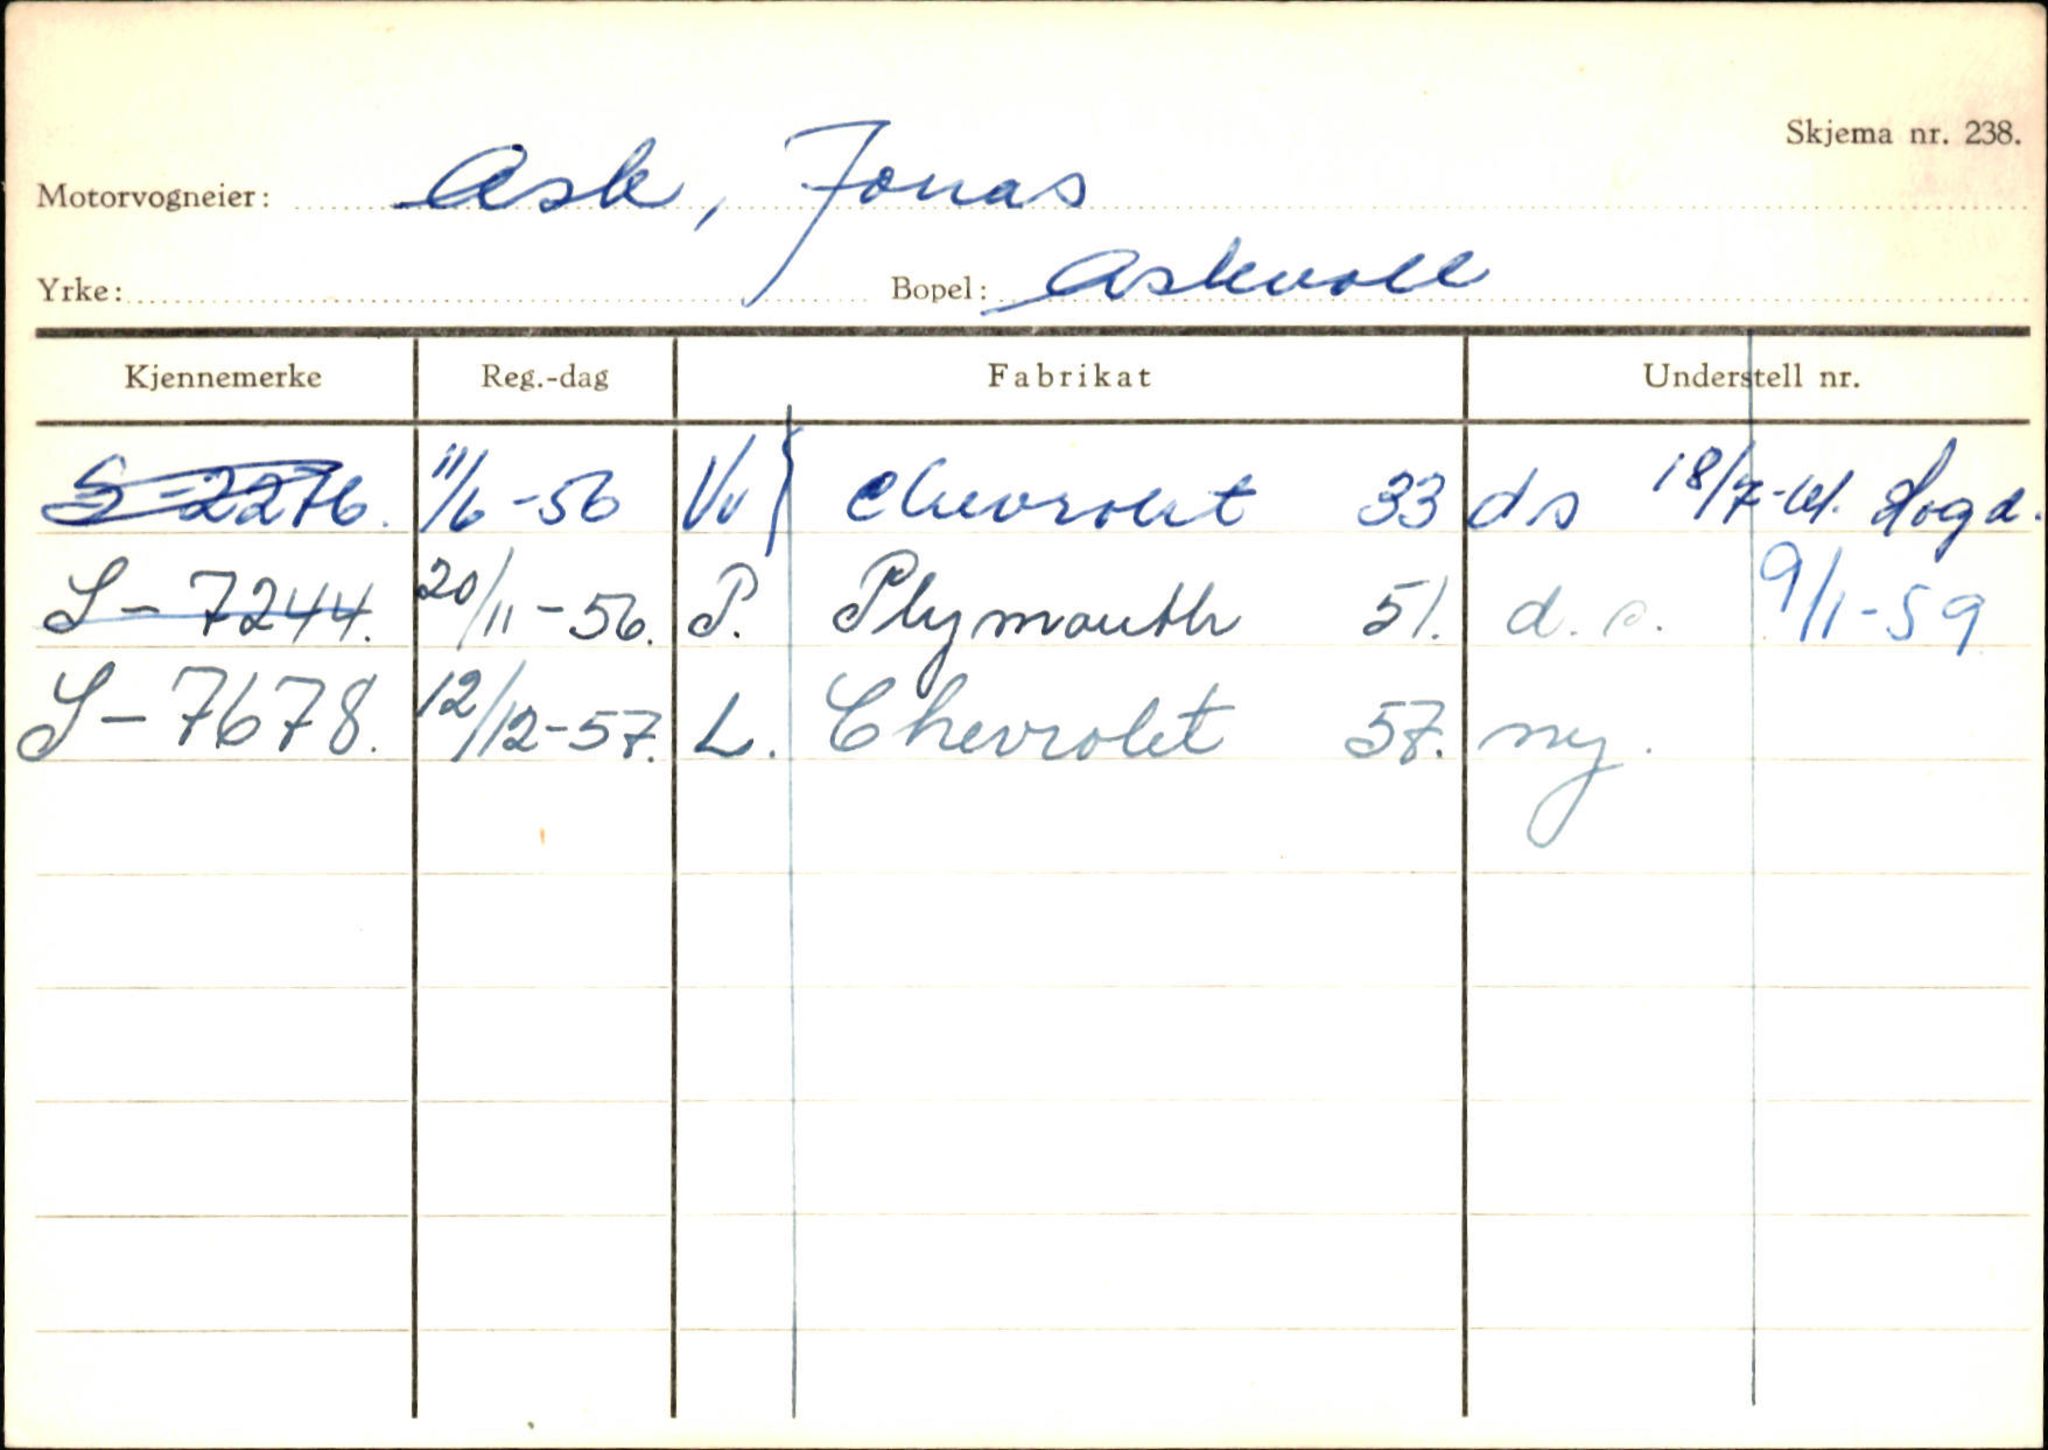 Skjema nr. 238.
Motorvogneier: Ask, Jonas
Yrke: Bopel: Askvoll
Kjennemerke Reg.-dag Fabrikat Understell nr.
S-2276. 11/6-56 Vv Chevrolet 33 ds 18/7-61. Hogd.
S-7244. 20/11-56. P. Plymouth 51. d.s. 9/1-59
S-7678. 12/12-57. L. Chevrolet 57. ny.